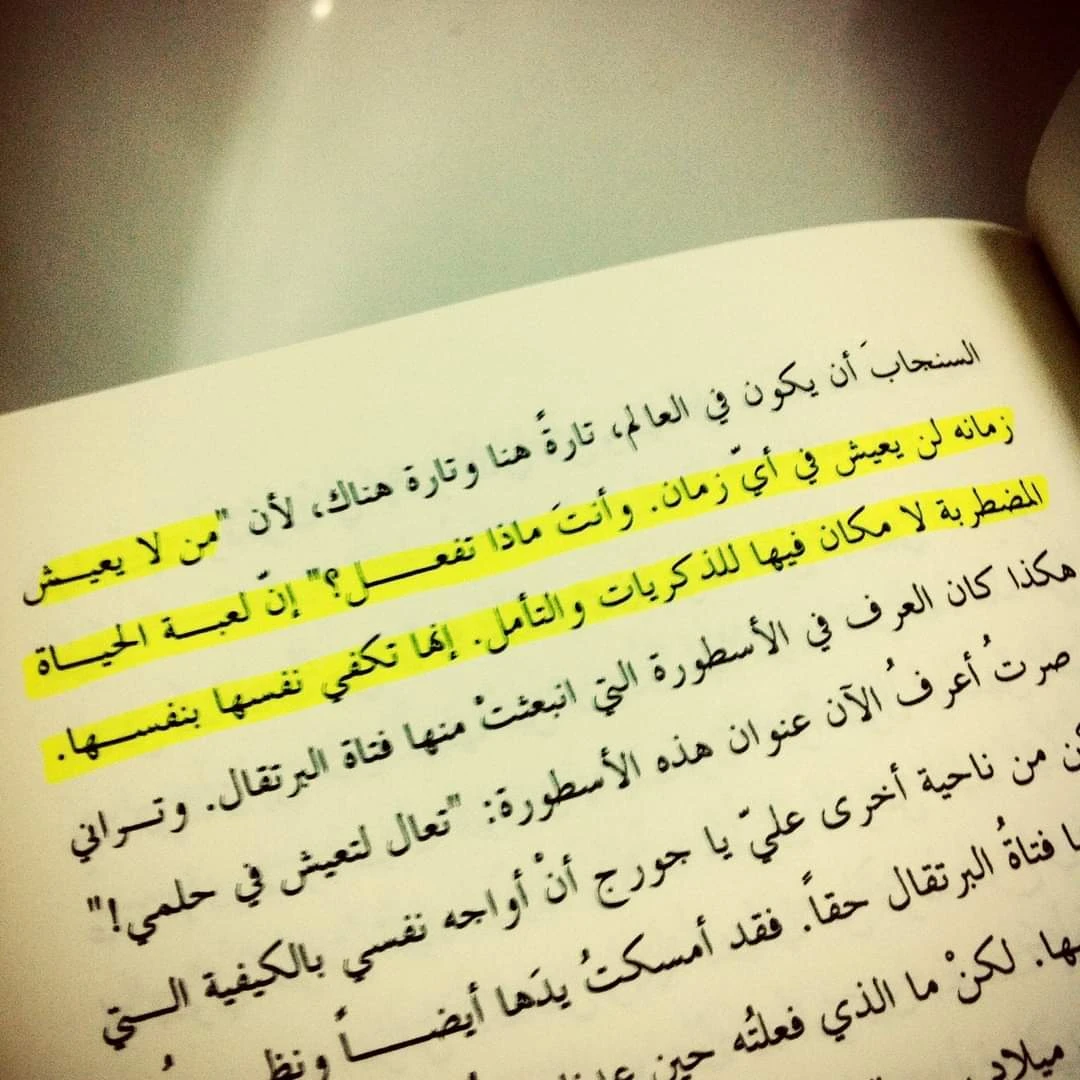 السنجابَ أن يكون في العالم، تارةً هنا وتارة هناك، لأن "من لا يعيـش
زمانه لن يعيش في أيّ زمان. وأنتَ ماذا تفعـــل؟" إنّ لعبـة الحيـاة
المضطربة لا مكان فيها للذكريات والتأمل. إنها تكفي نفسها بنفسـها.
هكذا كان العرف في الأسطورة التي انبعثتْ منها فتاة البرتقال. وتـراني
صرتُ أعرفُ الآن عنوان هذه الأسطورة: "تعال لتعيش في حلمي!"
من ناحية أخرى عليّ يا جورج أنْ أواجه نفسي بالكيفية الـتي
فتاةُ البرتقال حقاً. فقد أمسكتُ يدَها أيضـــاً
لكنْ ما الذي فعلتُه حين
ميلاد